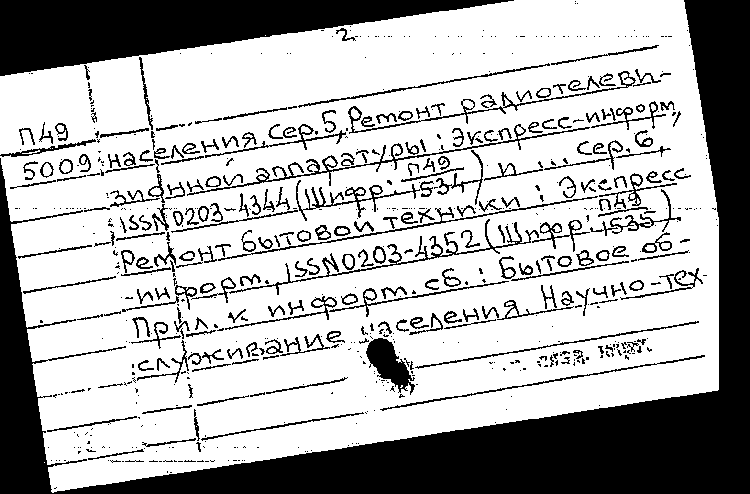 2
П49
5009
населения. Сер. 5, Ремонт радиотелеви-
зионной аппаратуры : Экспресс-информ,
ISSN 0203-4344 (Шифр: П49/1534) и ... сер. 6,
Ремонт бытовой техники : Экспресс
-информ., ISSN 0203-4352 (Шифр: П49/1535).
Прил. к информ. сб. : Бытовое об-
служивание населения. Научно-тех